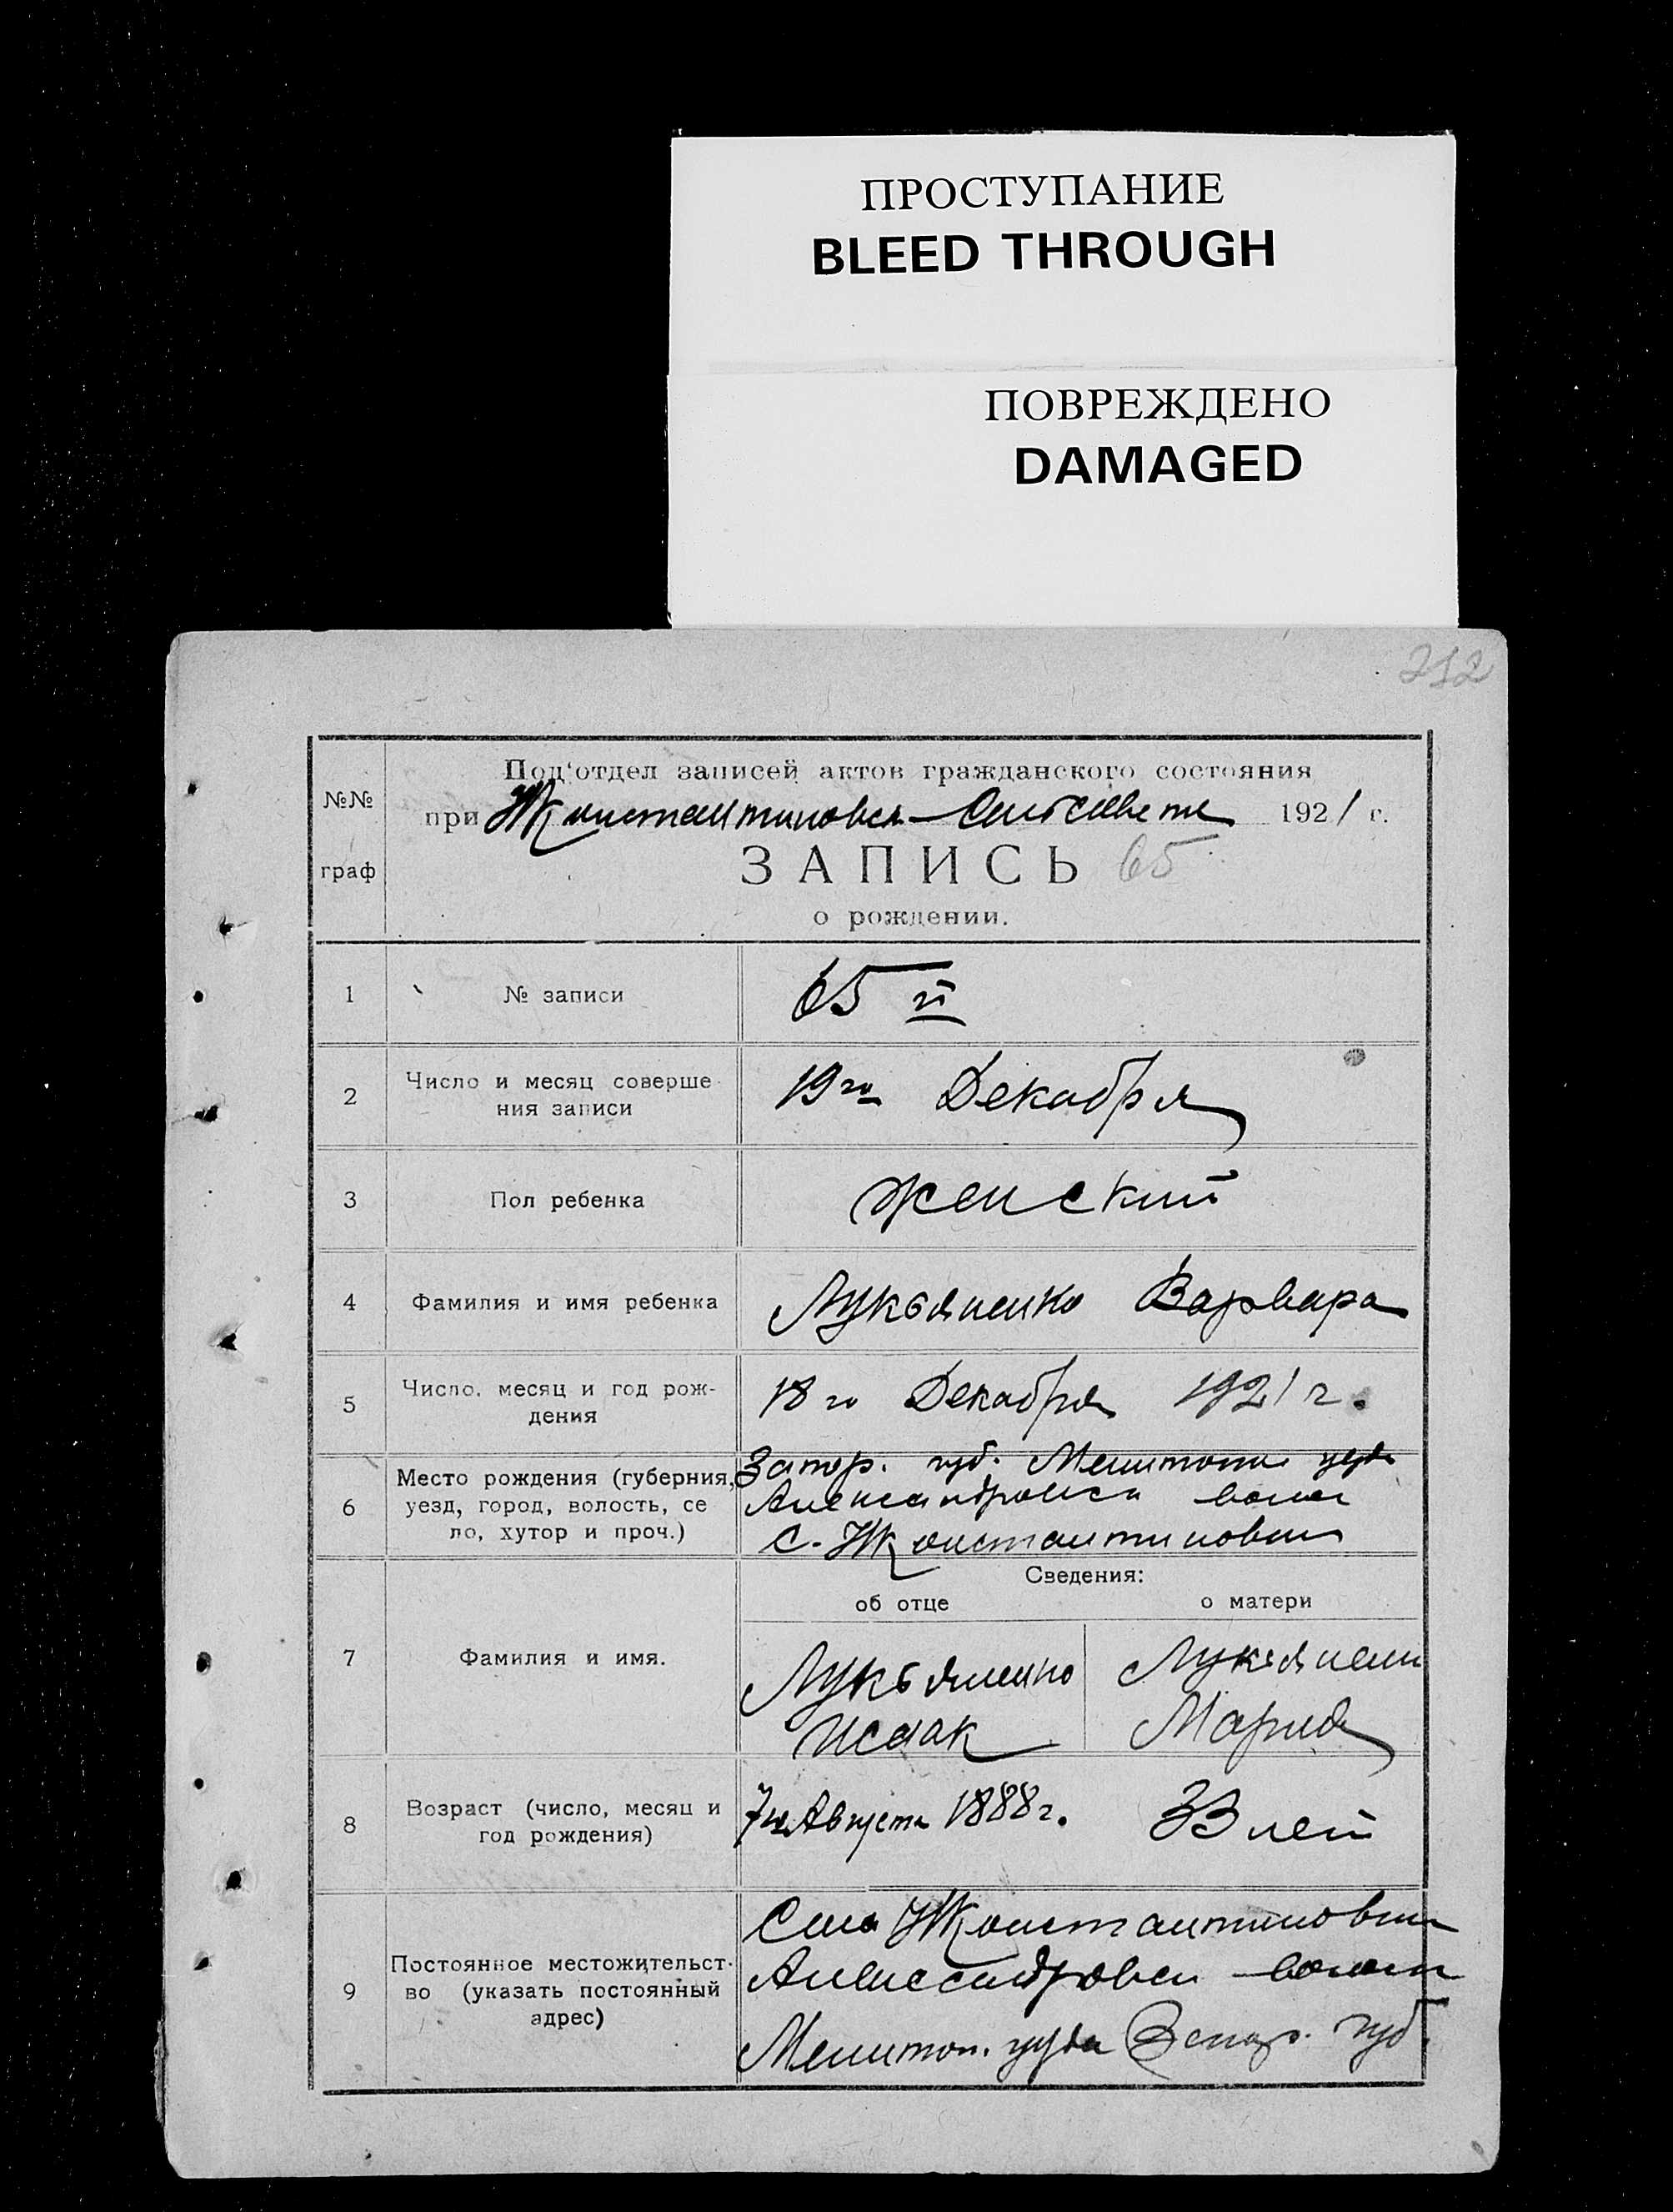 ПРОСТУПАНИЕ
BLEED THROUGH
ПОВРЕЖДЕНО
DAMAGED
212
Под'отдел записей актов гражданского состояния
№№
при Константиновск Сельсовете 1921 г.
граф
ЗАПИСЬ 65
о рождении.
1 № записи 65 й
2 Число и месяц соверше
ния записи
19го Декабря
3 Пол ребенка женский
4 Фамилия и имя ребенка Лукьяненко Варвара
5 Число, месяц и год рож-
дения
18го Декабря 1921 г.
6 Место рождения (губерния,
уезд, город, волость, се
ло, хутор и проч.)
Запор. губ. Мелитопол уезда
Александровск волос
С. Константиновка
Сведения:
об отце о матери
7 Фамилия и имя.
Лукьяненко
Исаак
Лукьянен
Мария
8 Возраст (число, месяц и
год рождения)
7го Августа 1888 г. 33 лет
9 Постоянное местожительст-
во (указать постоянный
адрес)
Село Константиновка
Александровск волост
Мелитоп. уезда Запор. губ.